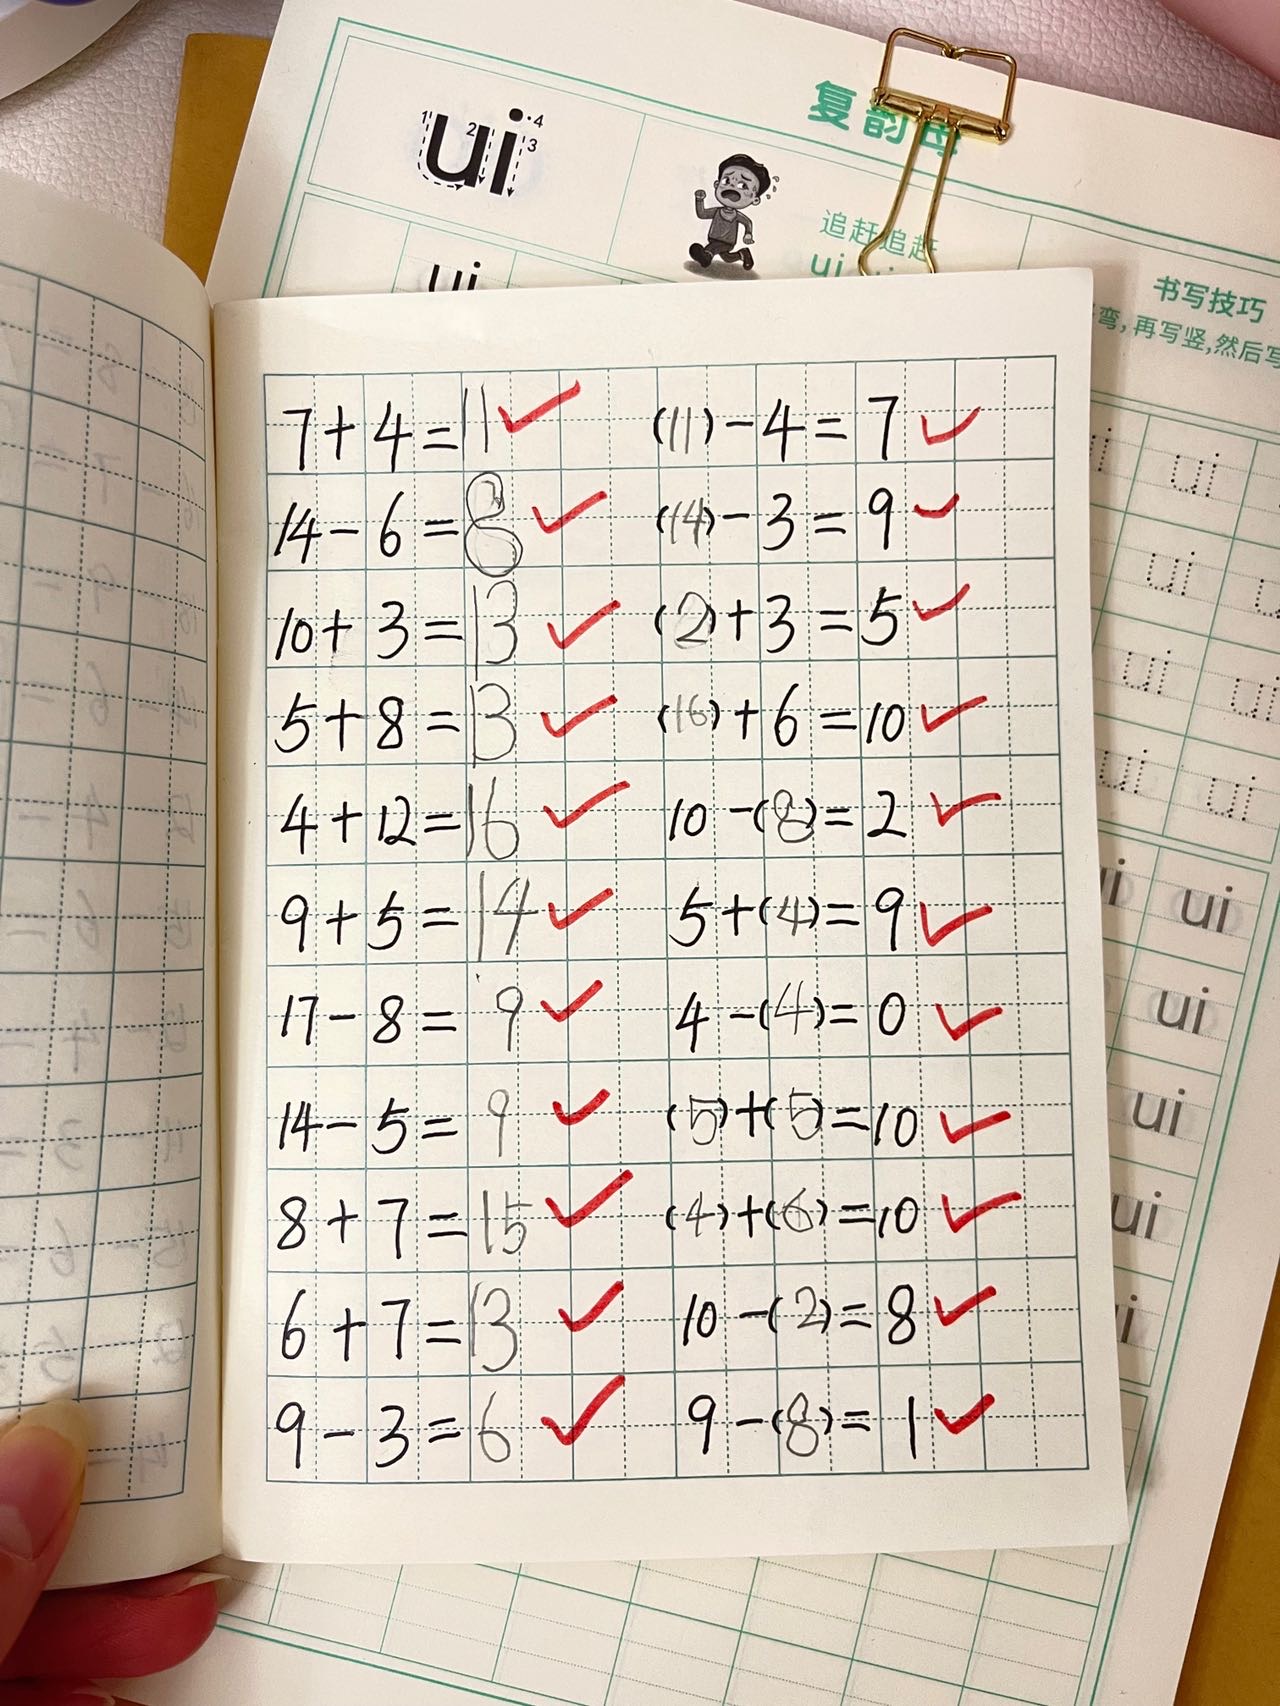 复韵母
ui
追赶追赶
ui
书写技巧
弯,再写竖,然后写
7+4=11 (11)-4=7
14-6=8 (14)-3=9
10+3=13 (2)+3=5
5+8=13 (16)+6=10
4+12=16 10-(8)=2
9+5=14 5+(4)=9
17-8=9 4-(4)=0
14-5=9 (5)+(5)=10
8+7=15 (4)+(6)=10
6+7=13 10-(2)=8
9-3=6 9-(8)=1
ui
ui
ui ui
ui ui
ui
ui
ui
ui